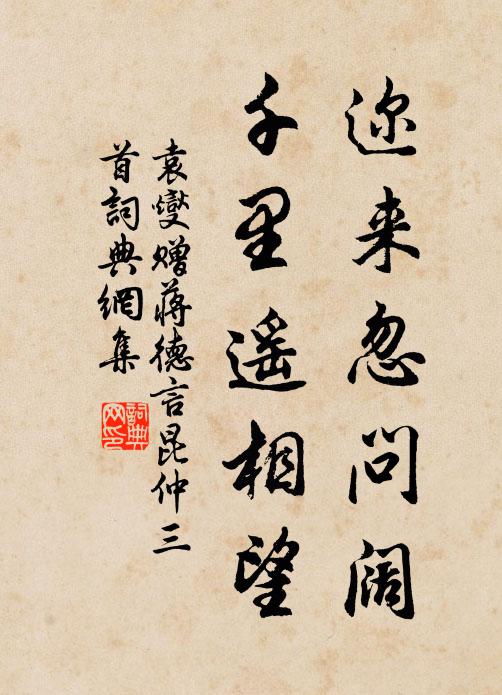 迩来忽问阔
千里遥相望
袁燮赠蒋德言昆仲三
首詞典網集
詞典
网印